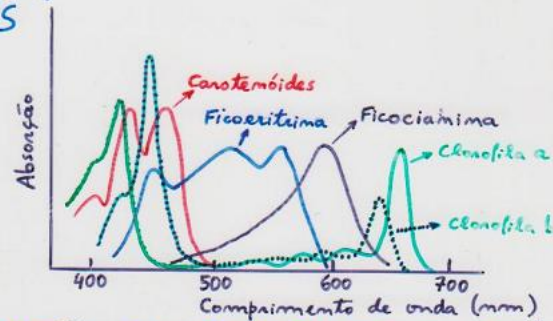 S
Absorção
Carotenóides
Ficoeritrina
Ficocianina
Clorofila a
Clorofila b
400
500
600
700
Comprimento de onda (nm)